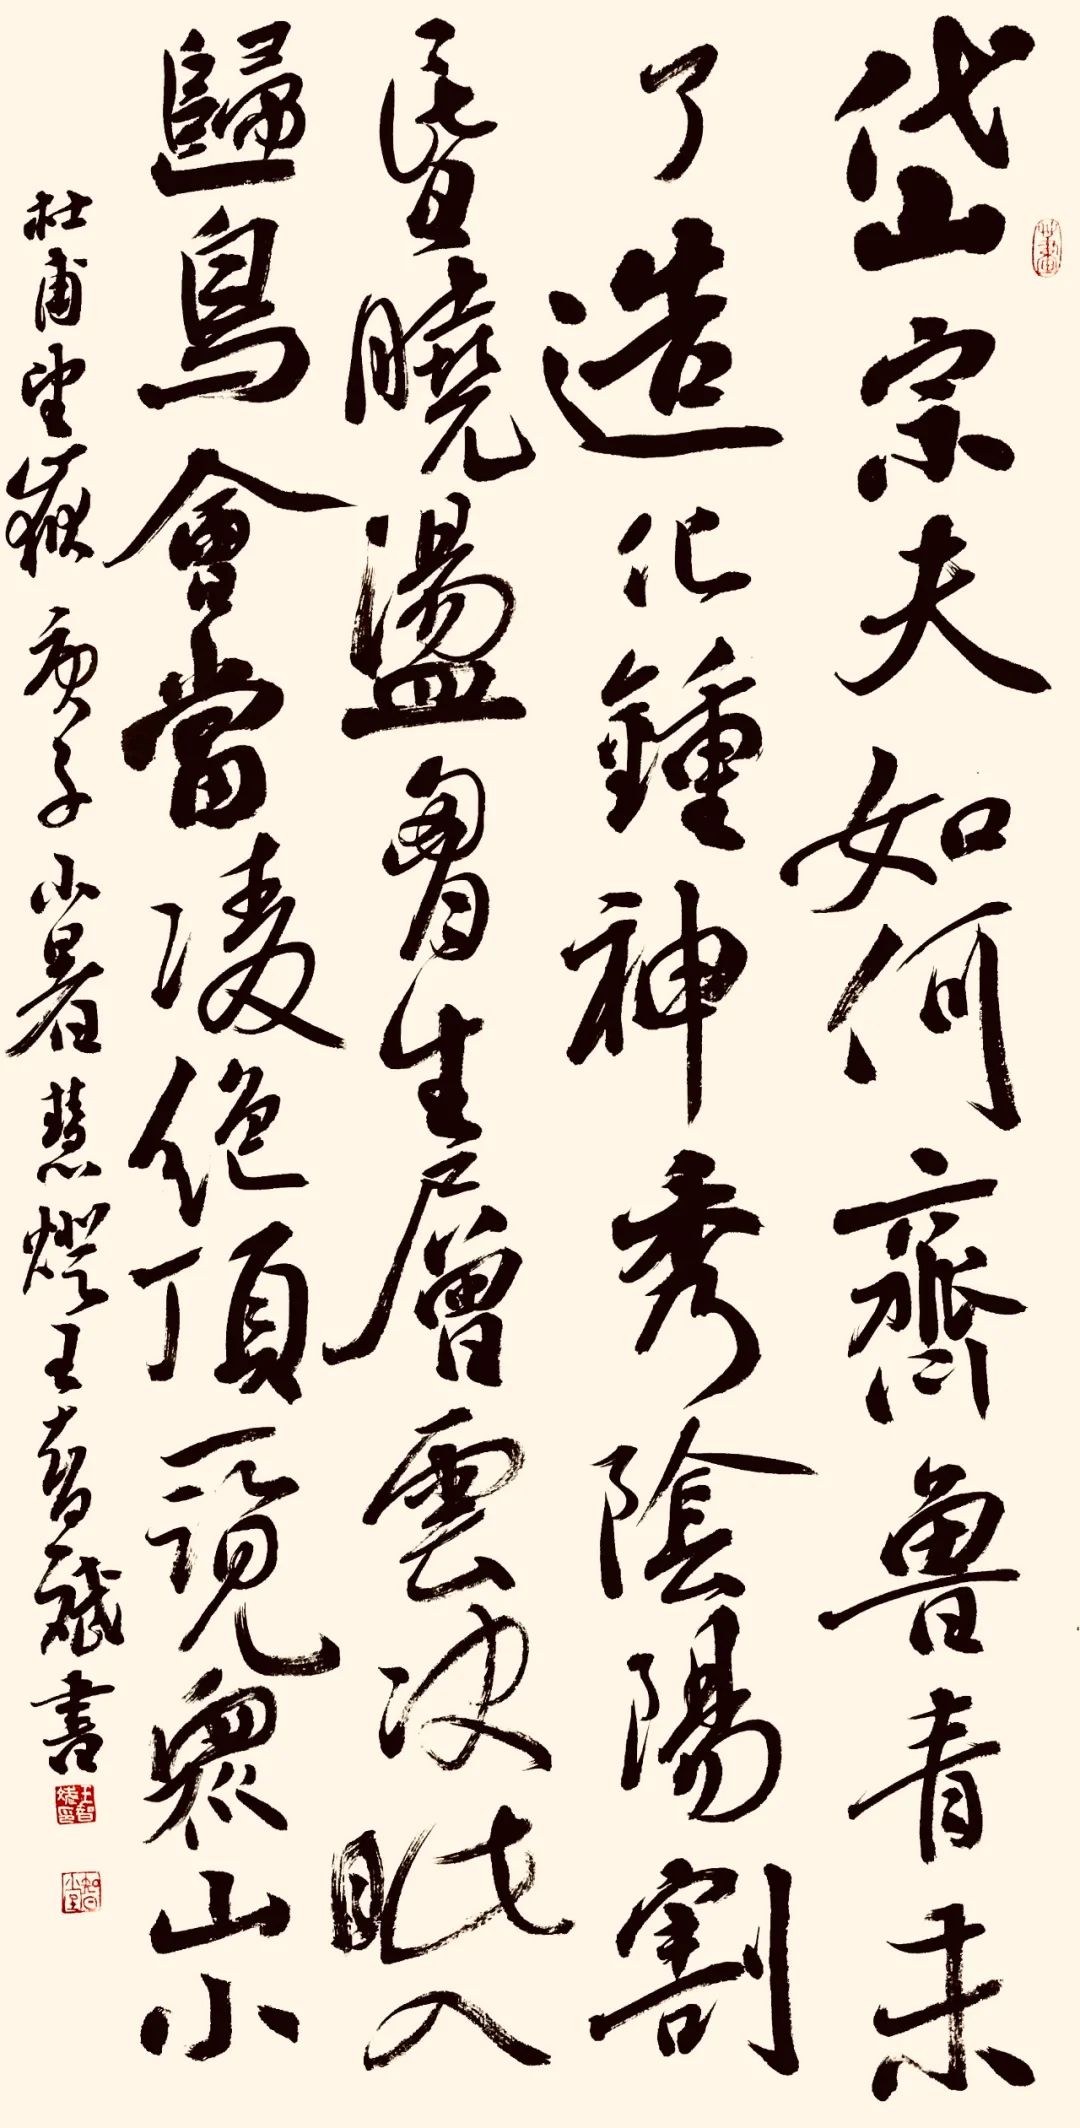 岱宗夫如何齊魯青未
了造化鍾神秀陰陽割
昬曉盪胷生層雲决眦入
歸鳥會當凌絕頂一覽衆山小
杜甫望嶽庚子小暑慧燈王智書